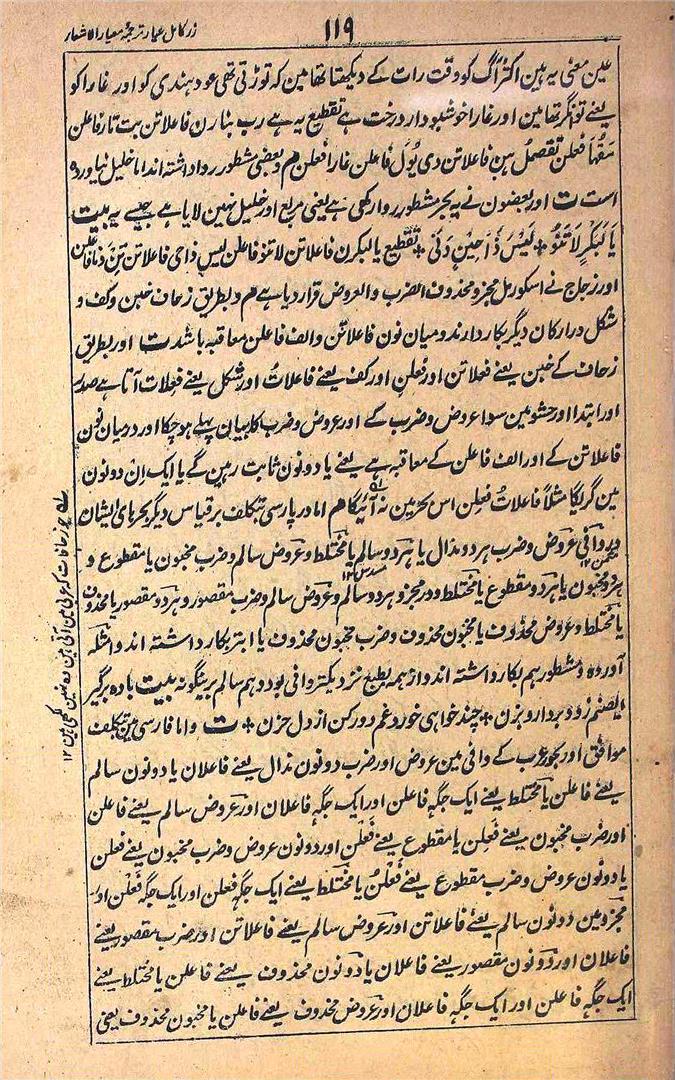 زر کامل عیار ترجمۂ معیار الاشعار
۱۱۹
عین معنی یہ ہین اکثر آگ کو وقت رات کے دیکھتا تھا مین کہ توڑتی تھی عود ہندی کو اور غارا کو
یعنے تو انگر تھا مین اور غارا خوشبودار درخت ہے تقطیع یہ ہے رب بنارن فاعلاتن بت تار فاعلن
مقہا فعلن تقصل ہین فاعلاتن دی یول فاعلن غارا فعلن هم و بعضی مشطور روا داشته اند اما خلیل نیاورده
است ت اور بعضون نے یہ بحر مشطور روا رکھی ہے یعنی مربع اور خلیل نہین لایا ہے جیسے یہ بیت
یا لبکر لا تنو + لیس ذا حین دنی + تقطیع یا لبکرن فاعلاتن لا تنو فاعلن لیس ذا حی فاعلاتن نن دنا فاعلن
اور زجاج نے اسکو رمل مجزو محذوف الضرب والعروض قرار دیا ہے هم و بطریق زحاف خبن و کف و
شکل در ارکان دیگر بکار دارند و میان نون فاعلاتن و الف فاعلن معاقبه باشد ت اور بطریق
زحاف کے خبن یعنے فعلاتن اور فعلن اور کف یعنے فاعلات اور شکل یعنے فعلات آتا ہے صدر
اور ابتدا اور حشو مین سوا عروض و ضرب کے اور عروض و ضرب کا بیان پہلے ہو چکا اور درمیان نون
فاعلاتن کے اور الف فاعلن کے معاقبہ ہے یعنے یا دونون ثابت رہین گے یا ایک ان دونون
مین گریگا مثلاً فاعلات فعلن اس بحر مین نہ آئیگا هم اما در پارسی بتکلف بر قیاس دیگر بحرهای ایشان
در وافی عروض و ضرب هر دو مذال یا هر دو سالم یا مختلط و عروض سالم و ضرب مخبون یا مقطوع و
هر دو مخبون یا هر دو مقطوع یا مختلط و در مجزو هر دو سالم و عروض سالم و ضرب مقصور و هر دو مقصور یا محذوف
یا مختلط و عروض محذوف یا مخبون محذوف و ضرب مخبون محذوف یا ابتر بکار داشته اند و امثله
آورده و مشطور هم بکار داشته اند و از همه بطبع نزدیکتر وافی بود و هم سالم برینگونه بیت باده برگیر
ای صنم زود بردار و بزن + چند خواهی خورد غم دور کن از دل حزن + ت و اما فارسی مین بتکلف
موافق اور بحور عرب کے وافی مین عروض اور ضرب دونون مذال یعنے فاعلان یا دونون سالم
یعنے فاعلن یا مختلط یعنے ایک جگہ فاعلن اور ایک جگہ فاعلان اور عروض سالم یعنے فاعلن
اور ضرب مخبون یعنے فعلن یا مقطوع یعنے فعلن اور دونون عروض و ضرب مخبون یعنے فعلن
یا دونون عروض و ضرب مقطوع یعنے فعلن یا مختلط یعنے ایک جگہ فعلن اور ایک جگہ فعلن اور
مجزو مین دونون سالم یعنے فاعلاتن اور عروض سالم یعنے فاعلاتن اور ضرب مقصور یعنے
فاعلان اور دونون مقصور یعنے فاعلان یا دونون محذوف یعنے فاعلن یا مختلط یعنے
ایک جگہ فاعلن اور ایک جگہ فاعلان اور عروض محذوف یعنے فاعلن یا مخبون محذوف یعنی